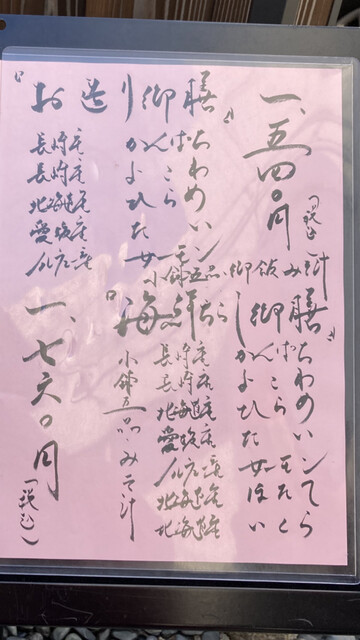 『お造り御膳』
一、五四〇円
(税込)
長崎産 かんぱち
長崎産 よこわ
北海道産 ひらめ
愛媛産 たい
産 サーモン
小鉢五品、御飯、みそ汁
『海鮮ちらし御膳』
長崎産 かんぱち
長崎産 よこわ
北海道産 ひらめ
愛媛産 たい
産 サーモン
北海道産 ほたて
北海道産 いくら
小鉢五品・みそ汁
一、七六〇円
(税込)